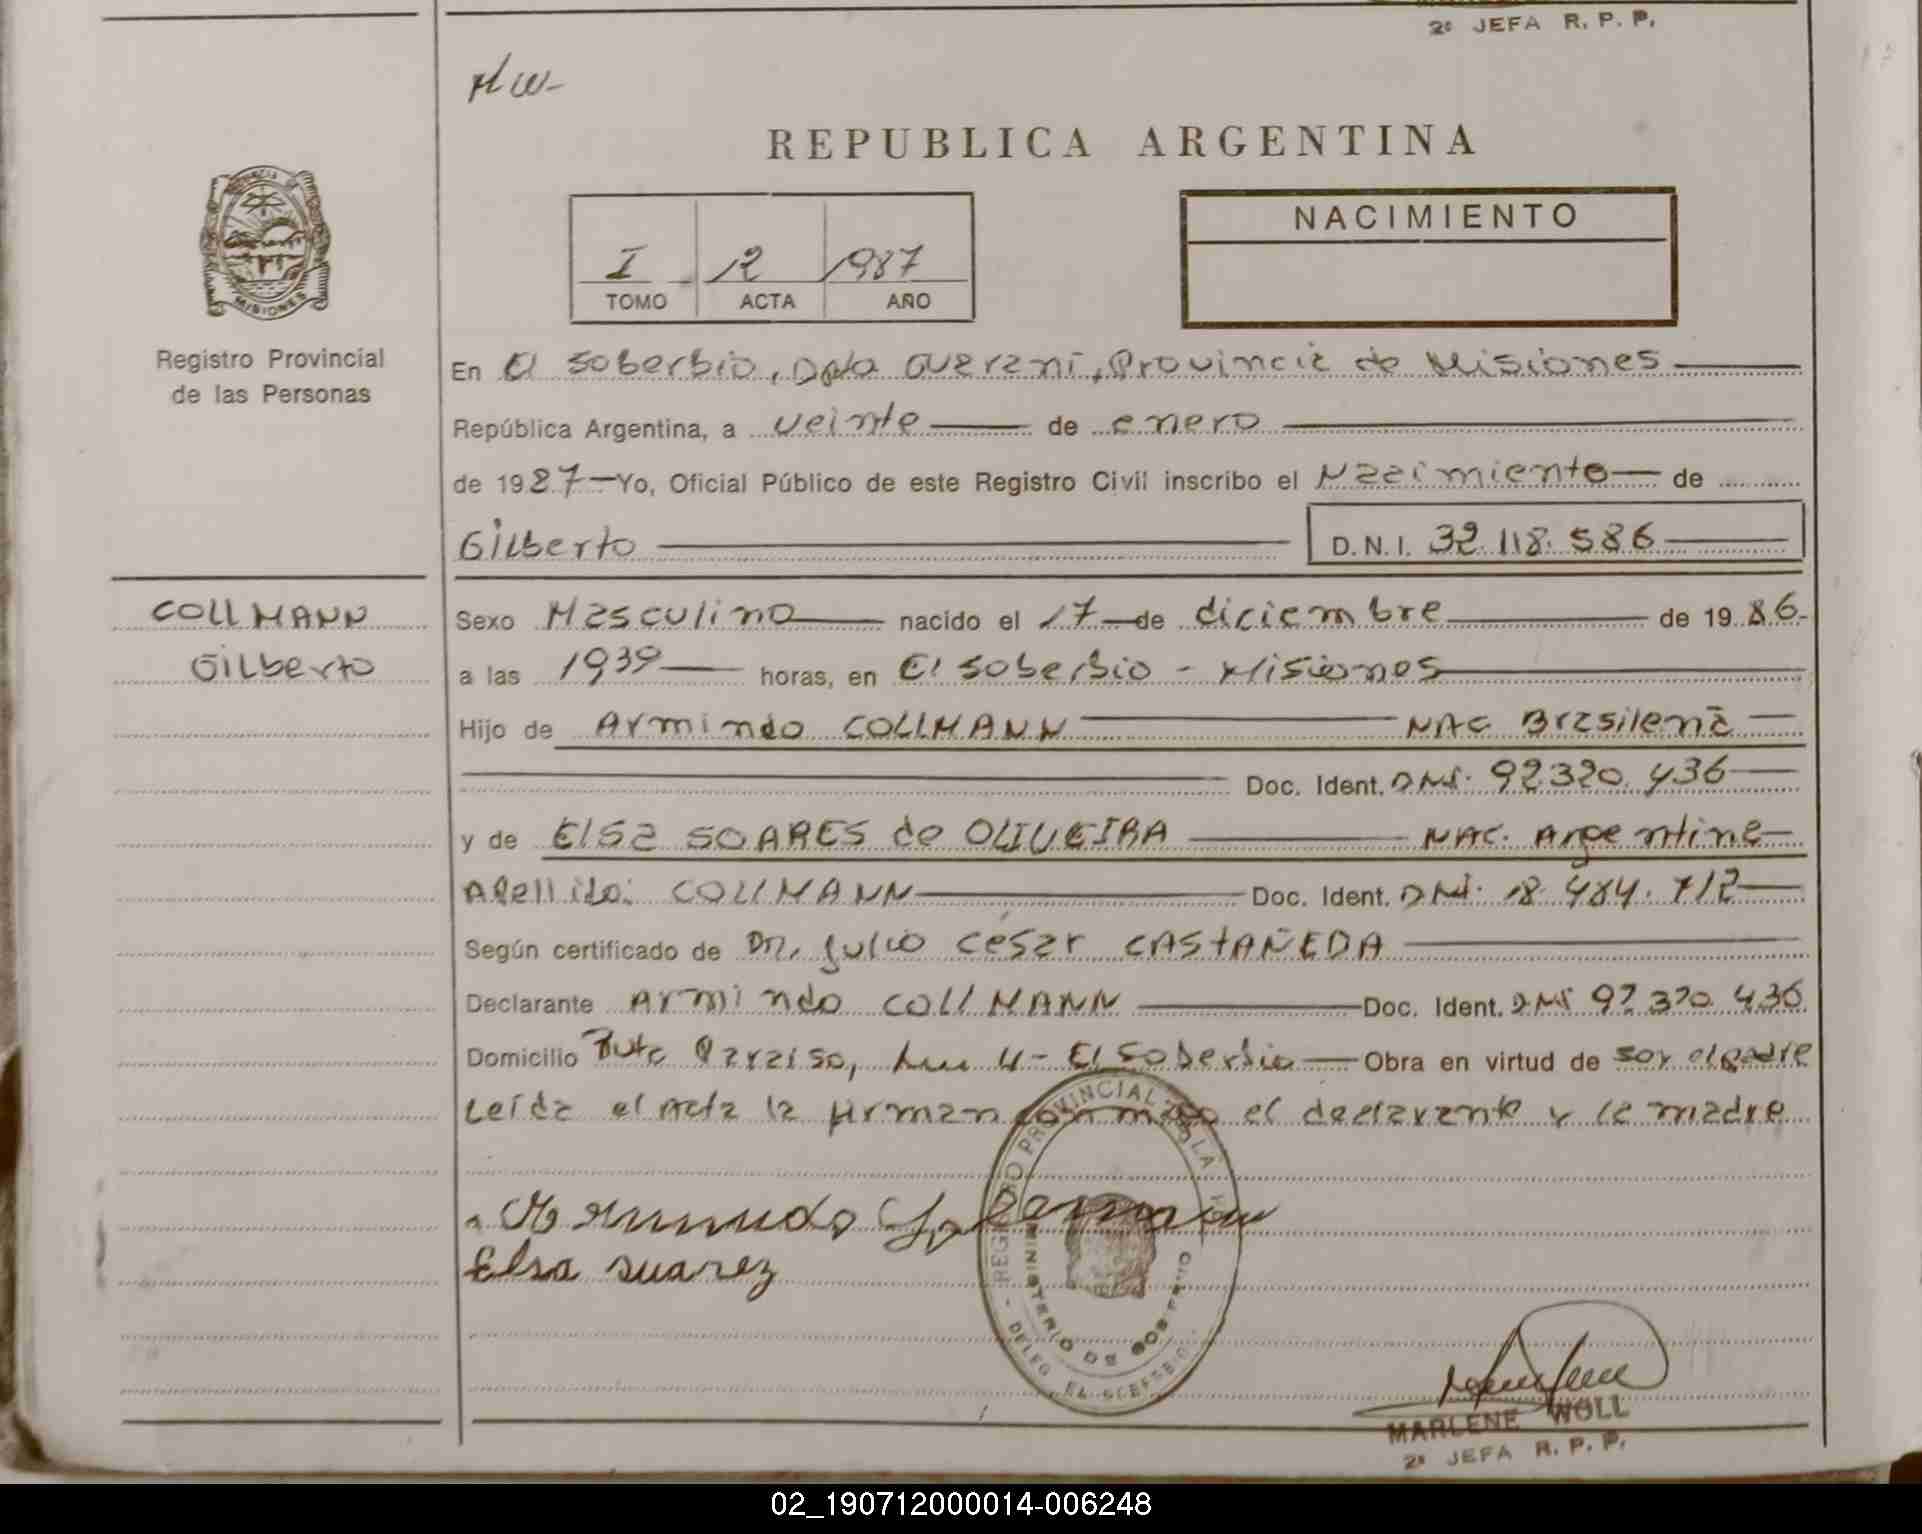 2º JEFA R. P. P.
HW-
REPUBLICA ARGENTINA
NACIMIENTO
I 12 1987
TOMO ACTA AÑO
MISIONES
Registro Provincial
de las Personas
En El Soberbio, Dpto Guarani, Provincia de Misiones
República Argentina, a veinte de enero
de 1987 Yo, Oficial Público de este Registro Civil inscribo el Nacimiento de
Gilberto D.N.I. 32.118.586
COLLMANN
Gilberto
Sexo Masculino nacido el 17 de diciembre de 1986-
a las 1939 horas, en El Soberbio - Misiones
Hijo de Armindo COLLMANN NAC Brasilena
Doc. Ident. DNI. 92320.436
y de Elsa SOARES de OLIVEIRA NAC. Argentina
Apellido: COLLMANN Doc. Ident. DNI. 18.484.712
Según certificado de Dr. Julio César CASTAÑEDA
Declarante Armindo COLLMANN Doc. Ident. DNI 92320.436
Domicilio Paraiso, 4- El Soberbio Obra en virtud de ser el padre
Leída el Acta la firman conmigo el declarante y la madre
Elsa suarez
REGISTRO PROVINCIAL DE LA
MINISTERIO DE GOBERNIO
- DELEG. EL SOBERBIO -
MARLENE WOLL
2º JEFA R. P. P.
02_190712000014-006248